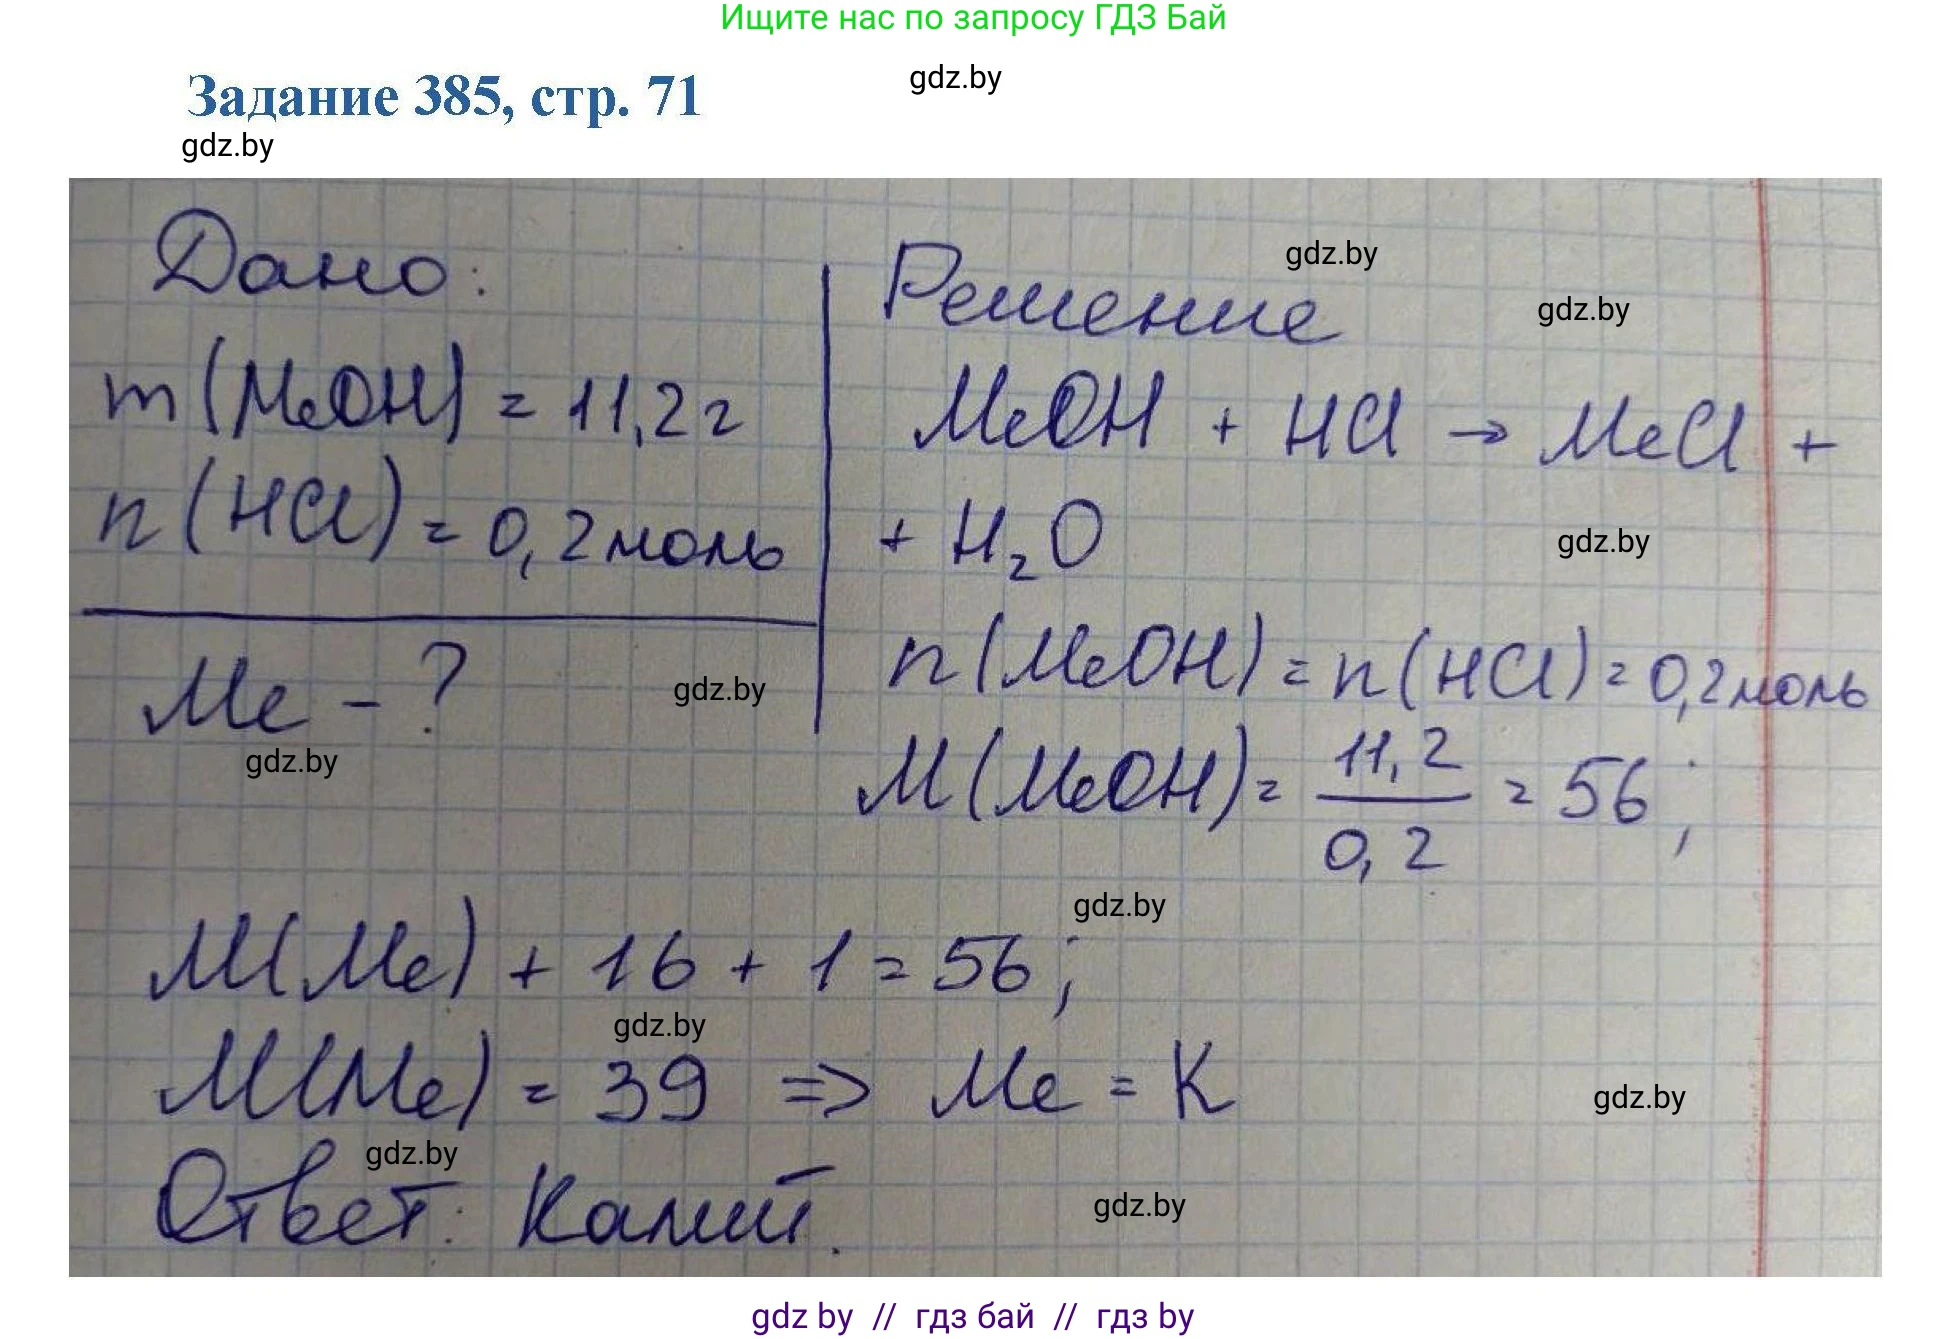 Ищите нас по запросу ГДЗ Бай
gdz.by
Задание 385, стр. 71
gdz.by
Дано:
m(MeOH) = 11,2 г
n(HCl) = 0,2 моль
Me - ?
gdz.by
gdz.by
Решение
gdz.by
gdz.by
MeOH + HCl → MeCl +
+ H₂O
gdz.by
n(MeOH) = n(HCl) = 0,2 моль
M(MeOH) = 11,2 / 0,2 = 56;
gdz.by
M(Me) + 16 + 1 = 56;
gdz.by
M(Me) = 39 => Me = K
gdz.by
gdz.by
Ответ: Калий.
gdz.by
gdz by // гдз бай // гдз by